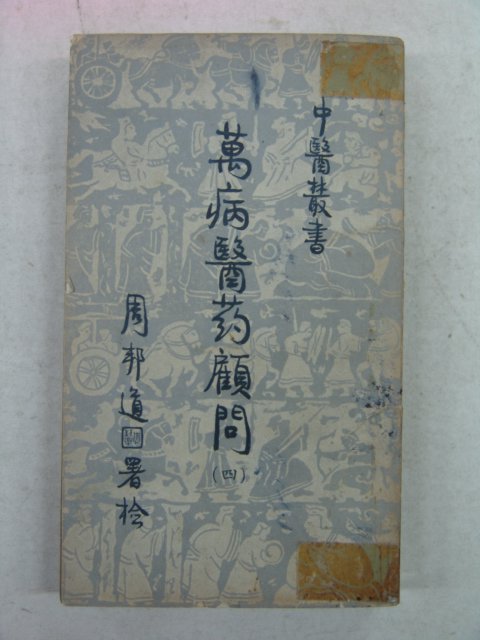 中醫叢書
萬病醫药顧問
(四)
周邦道署檢